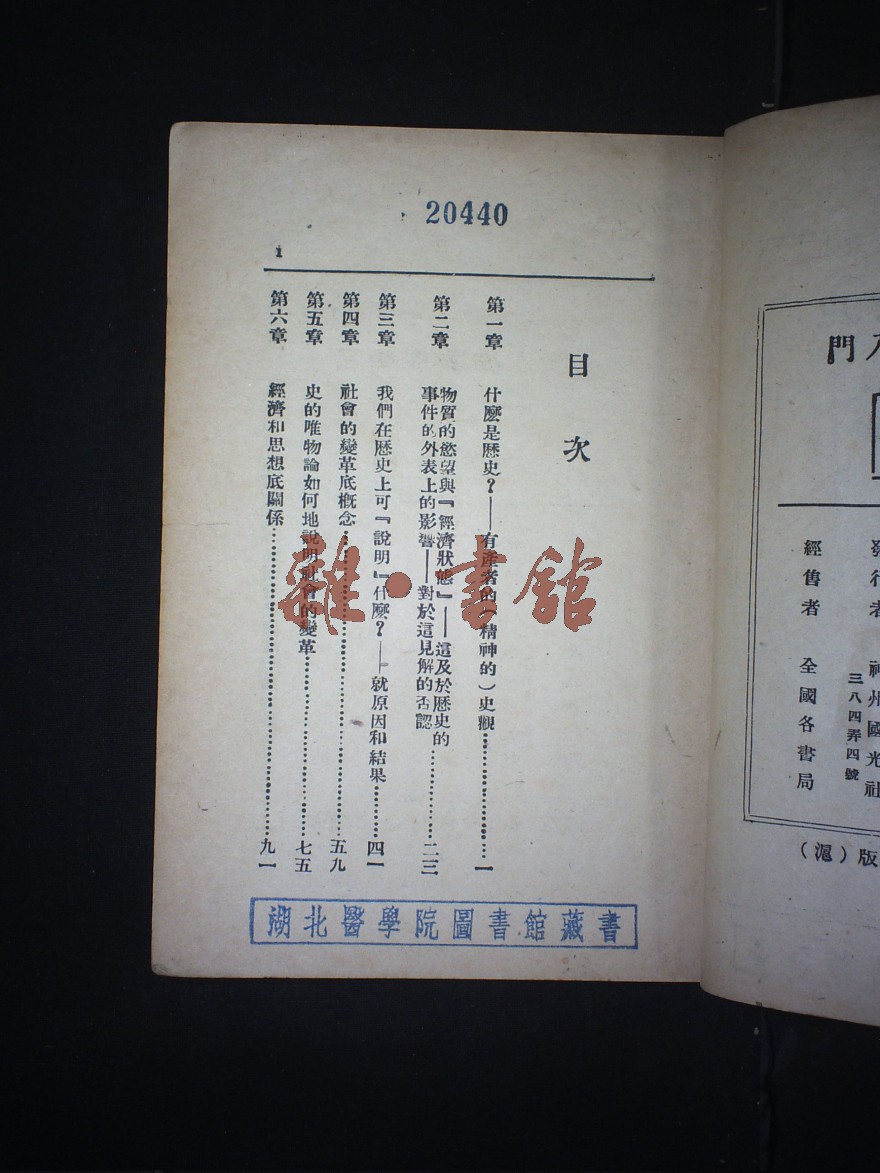 20440
1
目次
第一章 什麽是歷史?——有產者的(精神的)史觀……一
第二章 物質的慾望與『經濟狀態』——這及於歷史的
事件的外表上的影響——對於這見解的否認……二三
第三章 我們在歷史上可『說明』什麽?——就原因和結果……四一
第四章 社會的變革底概念……五九
第五章 史的唯物論如何地說明社會的變革……七五
第六章 經濟和思想底關係……九一
雜·書館
湖北醫學院圖書館藏書
門
發行者 神州國光社
三八四弄四號
經售者 全國各書局
版(滬)